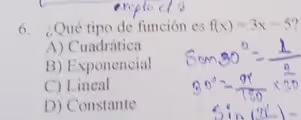 6. ¿Qué tipo de función es f(x) = 3x – 5?
A) Cuadrática
B) Exponencial
C) Lineal
D) Constante
Sen 30° = 1/2